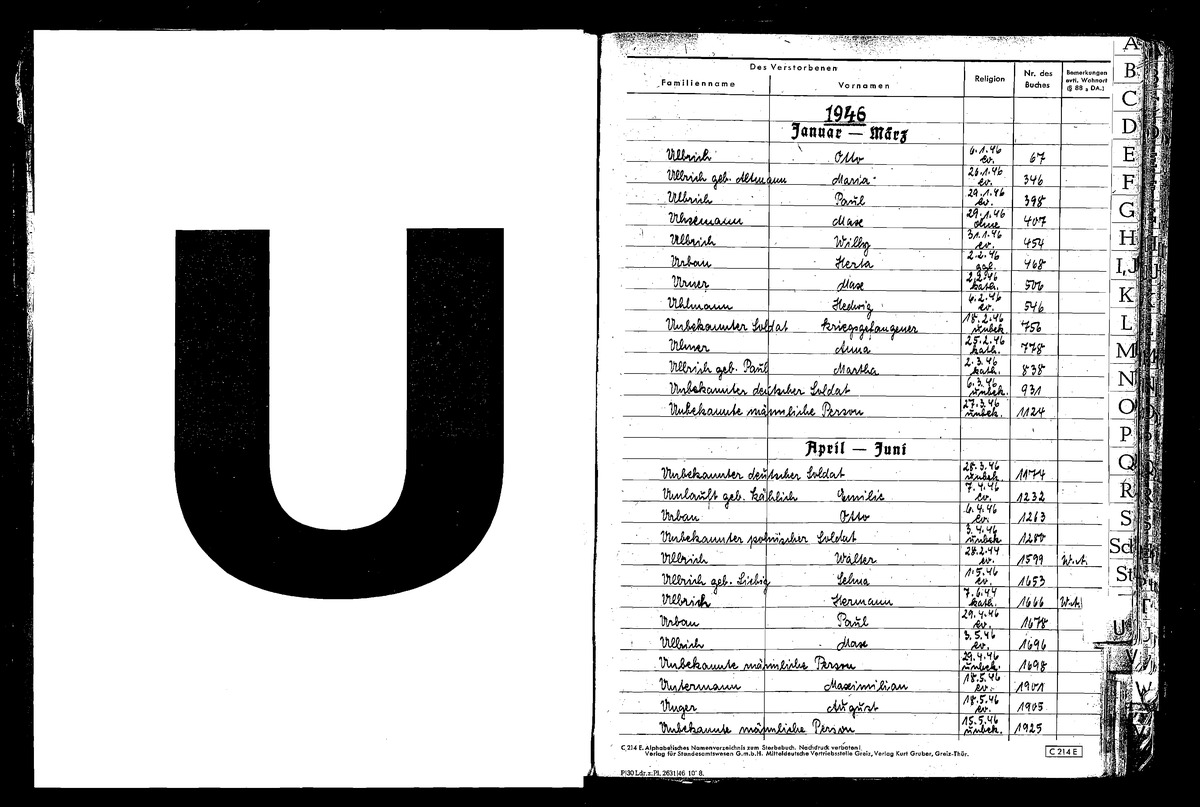 U
Des Verstorbenen
Familienname Vornamen Religion Nr. des Buches Bemerkungen evtl. Wohnort (§ 88 2 DA.)
1946
Januar — März
Ullrich Otto 6.1.46 ev. 67
Ullrich geb. Altmann Maria 26.1.46 ev. 346
Ullrich Paul 29.1.46 ev. 398
Uhsemann Max 29.1.46 ohne 407
Ullrich Willy 31.1.46 ev. 454
Urban Herta 2.2.46 ggl. 468
Urner Max 2.2.46 kath. 506
Uhlmann Hedwig 6.2.46 ev. 546
Unbekannter Soldat Kriegsgefangener 18.2.46 unbek. 756
Ulmer Anna 25.2.46 kath. 778
Ullrich geb. Paul Martha 2.3.46 kath. 838
Unbekannter deutscher Soldat 6.3.46 unbek. 931
Unbekannte männliche Person 27.3.46 unbek. 1124
April — Juni
Unbekannter deutscher Soldat 28.3.46 unbek. 1174
Umlauft geb. Kählich Emilie 7.4.46 ev. 1232
Urban Otto 6.4.46 ev. 1263
Unbekannter polnischer Soldat 3.4.46 unbek. 1280
Ullrich Walter 28.2.44 ev. 1599 W.st.
Ullrich geb. Liebig Selma 1.5.46 ev. 1653
Ullrich Hermann 7.6.44 kath. 1666 W.st.
Urban Paul 29.4.46 ev. 1678
Ullrich Max 3.5.46 ev. 1696
Unbekannte männliche Person 29.4.46 unbek. 1698
Untermann Maximilian 18.5.46 ev. 1901
Unger August 18.5.46 ev. 1905
Unbekannte männliche Person 15.5.46 unbek. 1925
C 214 E. Alphabetisches Namenverzeichnis zum Sterbebuch. Nachdruck verboten!
Verlag für Standesamtswesen G.m.b.H. Mitteldeutsche Vertriebsstelle Greiz, Verlag Kurt Gruber, Greiz-Thür.
C 214 E
P/30 Ldr. z. Pl. 2631/46 10' 8.
A
B
C
D
E
F
G
H
I, J
K
L
M
N
O
P
Q
R
S
Sch
St
T
U
V
W